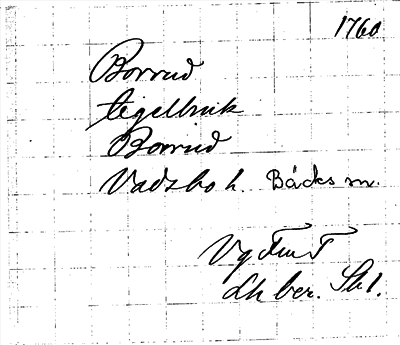 1760
Borrud
tegelbruk
Borrud
Vadsbo h. Bäcks m.
Vg
Lh ber. Sk 1.